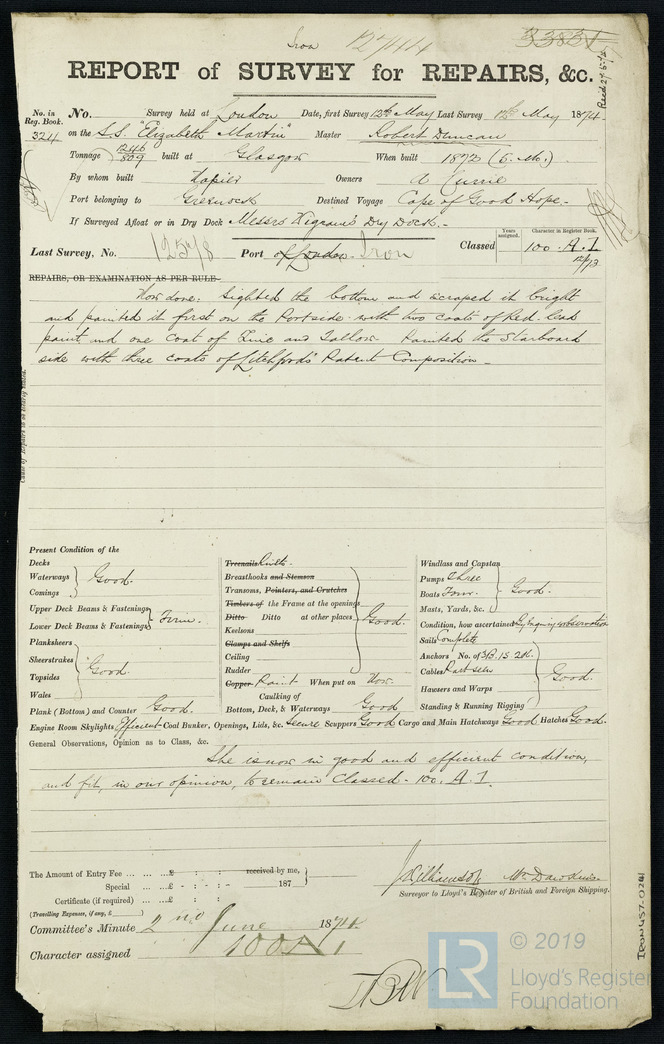 Iron
33831
REPORT of SURVEY for REPAIRS, &c.
Recd 29.5.74
No. in Reg. Book. 324
No. Survey held at London Date, first Survey 12th May Last Survey 12th May 1874
on the S.S. "Elizabeth Martin" Master Robert Duncan
Tonnage 1246/809 built at Glasgow When built 1872 (5. Mo.)
By whom built Napier Owners A Currie
Port belonging to Greenock Destined Voyage Cape of Good Hope.
If Surveyed Afloat or in Dry Dock Messrs Wigram's Dry Dock.
Last Survey, No. 125/8 Port of London. Iron Classed Years assigned. Character in Register Book. 100. A.1
12/73
REPAIRS, OR EXAMINATION AS PER RULE
Now done: Sighted the bottom and scraped it bright
and painted it first on the Portside with two coats of Red-lead
paint and one coat of Zinc and Tallow. Painted the Starboard
side with three coats of Litchford's Patent Composition
Cause of Repairs to be clearly stated.
Present Condition of the
Decks
Waterways
Comings
Good.
Upper Deck Beams & Fastenings
Lower Deck Beams & Fastenings
Firm.
Planksheers
Sheerstrakes
Topsides
Wales
Good.
Plank (Bottom) and Counter Good.
Treenails Rivets.
Breasthooks and Stemson
Transoms, Pointers, and Crutches
Timbers of the Frame at the openings
Ditto Ditto at other places
Keelsons
Clamps and Shelfs
Ceiling
Rudder
Good.
Copper Paint When put on Now.
Caulking of
Bottom, Deck, & Waterways Good
Windlass and Capstan
Pumps Three
Boats Four.
Masts, Yards, &c.
Good.
Condition, how ascertained By Enquiry & observation
Sails Complete
Anchors No. of 3B. 1S. 2K.
Cables Part seen
Hawsers and Warps
Standing & Running Rigging
Good.
Engine Room Skylights Efficient Coal Bunker, Openings, Lids, &c. Secure Scuppers Good Cargo and Main Hatchways Good Hatches Good.
General Observations, Opinion as to Class, &c.
She is now in good and efficient condition,
and fit, in our opinion, to remain Classed - 100. A.1.
The Amount of Entry Fee £ : : received by me,
Special £ - : - : 187
Certificate (if required) £ - : - :
(Travelling Expenses, if any, £ )
Surveyor to Lloyd's Register of British and Foreign Shipping.
Committee's Minute 2nd June 1874.
Character assigned 100A1
IRON457-0241
LR
© 2019
Lloyd's Register
Foundation